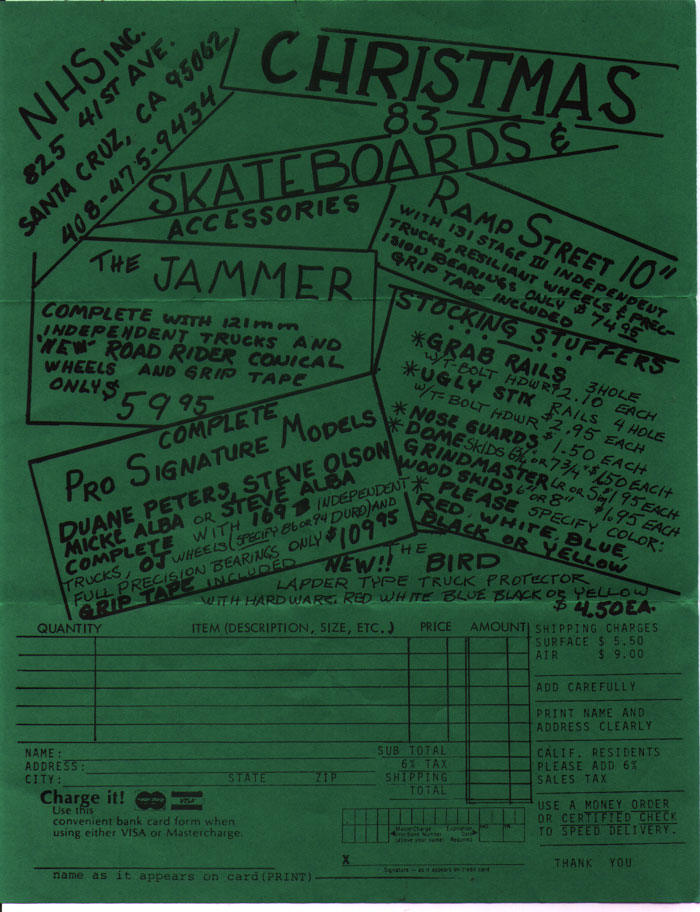 NHS INC.
825 41ST AVE.
SANTA CRUZ, CA 95062
408-475-9434
CHRISTMAS
83
SKATEBOARDS &
ACCESSORIES
RAMP STREET 10"
WITH 131 STAGE III INDEPENDENT
TRUCKS, RESILIANT WHEELS & PREC-
ISION BEARINGS ONLY $74.95
GRIP TAPE INCLUDED
THE JAMMER
COMPLETE WITH 121mm
INDEPENDENT TRUCKS AND
"NEW" ROAD RIDER CONICAL
WHEELS AND GRIP TAPE
ONLY $59.95
STOCKING STUFFERS
*GRAB RAILS 3 HOLE
W/T-BOLT HDWR $2.10 EACH
*UGLY STIX RAILS 4 HOLE
W/T-BOLT HDWR $2.95 EACH
*NOSE GUARDS $1.50 EACH
*DOME SKIDS OR 7 3/4" $1.50 EACH
GRINDMASTER $1.95 EACH
WOOD SKIDS 6" OR 8" $1.95 EACH
* PLEASE SPECIFY COLOR:
RED, WHITE, BLUE,
BLACK OR YELLOW
COMPLETE
PRO SIGNATURE MODELS
DUANE PETERS, STEVE OLSON
MICKE ALBA OR STEVE ALBA
COMPLETE WITH 169 INDEPENDENT
TRUCKS, OJ WHEELS (SPECIFY 86 OR 94 DURO) AND
FULL PRECISION BEARINGS ONLY $109.95
GRIP TAPE INCLUDED
NEW!! THE BIRD
LAPPER TYPE TRUCK PROTECTOR
WITH HARDWARE. RED WHITE BLUE BLACK OR YELLOW
$4.50 EA.
QUANTITY ITEM (DESCRIPTION, SIZE, ETC.) PRICE AMOUNT
SHIPPING CHARGES
SURFACE $ 5.50
AIR $ 9.00
ADD CAREFULLY
PRINT NAME AND
ADDRESS CLEARLY
CALIF. RESIDENTS
PLEASE ADD 6%
SALES TAX
USE A MONEY ORDER
OR CERTIFIED CHECK
TO SPEED DELIVERY.
THANK YOU
NAME:
ADDRESS:
CITY: STATE ZIP
SUB TOTAL
6% TAX
SHIPPING
TOTAL
Charge it! master charge VISA
Use this
convenient bank card form when
using either VISA or Mastercharge.
Master Charge
Interbank Number
(above your name)
Expiration
Date
Required
MO. YR.
X
Signature — as it appears on credit card
name as it appears on card(PRINT)